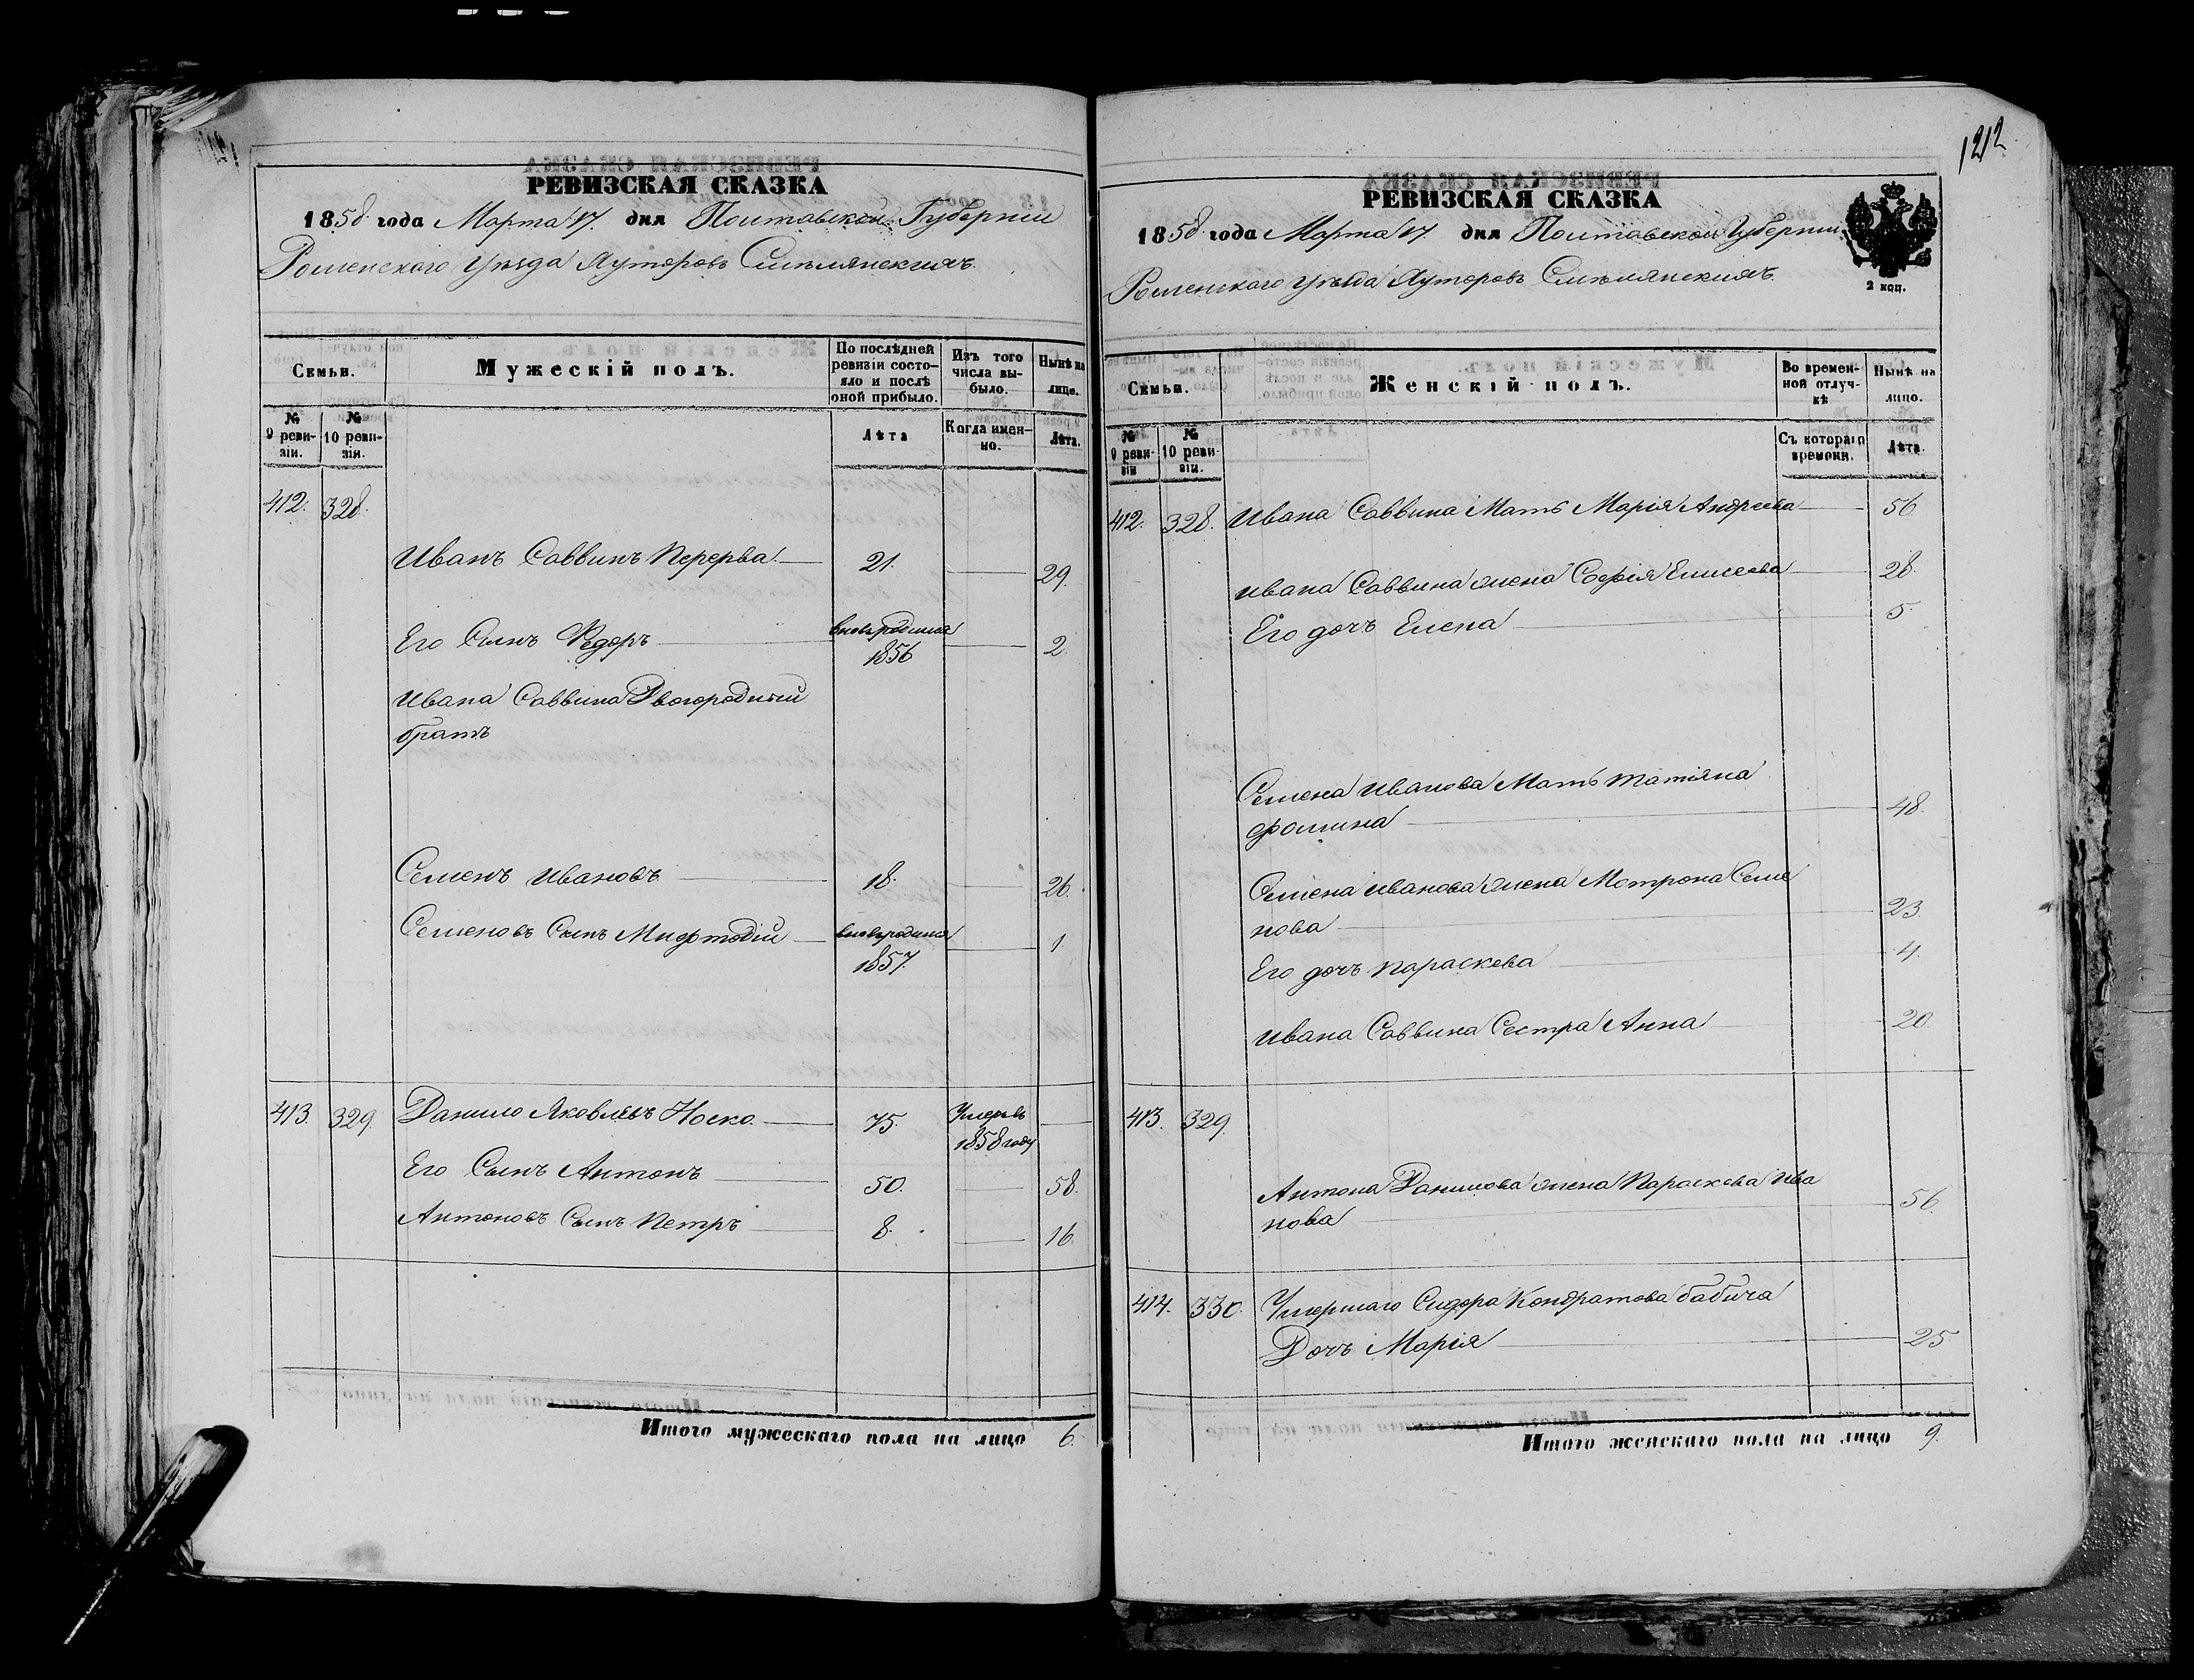 1212
РЕВИЗСКАЯ СКАЗКА
1858 года Марта 17. дня Полтавской Губернии
Роменскаго Уѣзда Хуторовъ Смѣлянскихъ.
Семьи.
Мужескій полъ.
По послѣдней ревизіи состо-
яло и послѣ
оной прибыло.
Изъ того
числа вы-
было.
Нынѣ на
лицо.
№
9 реви-
зіи.
№
10 реви-
зіи.
Лѣта
Когда имен-
но.
Лѣта.
412. 328.
Иванъ Саввинъ Перерва. 21. 29.
Его Сынъ Ѳедоръ вновь родился 1856 2.
Ивана Саввина Двоюродный
братъ
Семенъ Ивановъ 18. 26.
Семеновъ Сынъ Мифтодій вновь родился 1857. 1.
413. 329. Данило Яковлевъ Носко. 75. Умеръ въ 1858 году
Его Сынъ Антонъ 50. 58.
Антоновъ Сынъ Петръ 8. 16.
Итого мужескаго пола на лицо 6.
РЕВИЗСКАЯ СКАЗКА
1858 года Марта 17. дня Полтавской Губерніи
Роменскаго Уѣзда Хуторовъ Смѣлянскихъ.
2 коп.
Семьи.
Женскій полъ.
Во времен-
ной отлуч-
кѣ
Нынѣ на
лицо.
№
9 реви-
зіи
№
10 реви-
зіи.
Съ котораго
времени.
Лѣта.
412. 328. Ивана Саввина Мать Марія Андреева 56.
Ивана Саввина жена Софія Елисеева 28.
Его дочь Елена 5.
Семена Иванова Мать Татіяна
Фомина 48.
Семена Иванова жена Мотрона Семе
нова 23.
Его дочь Параскева 4.
Ивана Саввина Сестра Анна 20.
413. 329.
Антона Данилова жена Параскева Ива
нова 56.
414. 330. Умершаго Сидора Кондратова бабича
Дочь Марія 25
Итого женскаго пола на лицо 9.